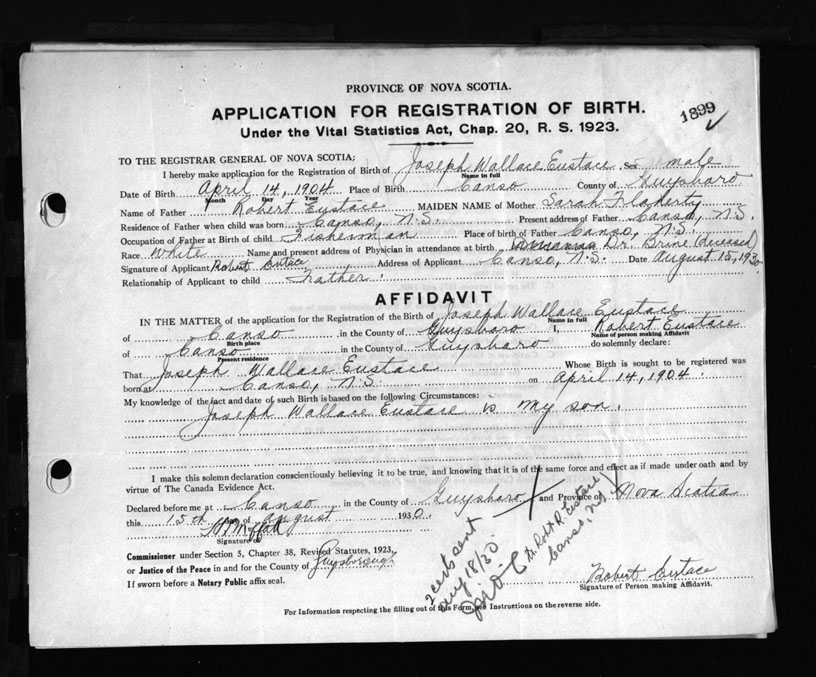 PROVINCE OF NOVA SCOTIA.
APPLICATION FOR REGISTRATION OF BIRTH.
1899
Under the Vital Statistics Act, Chap. 20, R. S. 1923.
TO THE REGISTRAR GENERAL OF NOVA SCOTIA;
I hereby make application for the Registration of Birth of Joseph Wallace Eustace Sex male
Name in full
Date of Birth April 14, 1904 Place of Birth Canso County of Guysboro
Month Day Year
Name of Father Robert Eustace MAIDEN NAME of Mother Sarah Flaherty
Residence of Father when child was born Canso, N.S. Present address of Father Canso, N.S.
Occupation of Father at Birth of child Fisherman Place of birth of Father Canso, N.S.
Race White Name and present address of Physician in attendance at birth Dr. Brine (deceased)
Signature of Applicant Robert Eustace Address of Applicant Canso, N.S. Date August 15, 1930
Relationship of Applicant to child Father.
AFFIDAVIT
IN THE MATTER of the application for the Registration of the Birth of Joseph Wallace Eustace
Name in full
of Canso in the County of Guysboro I, Robert Eustace
Birth place Name of person making Affidavit
of Canso in the County of Guysboro do solemnly declare:
Present residence
That Joseph Wallace Eustace Whose Birth is sought to be registered was
born at Canso, N.S. on April 14, 1904.
My knowledge of the fact and date of such Birth is based on the following Circumstances:
Joseph Wallace Eustace is my son.
I make this solemn declaration conscientiously believing it to be true, and knowing that it is of the same force and effect as if made under oath and by
virtue of The Canada Evidence Act.
Declared before me at Canso in the County of Guysboro and Province of Nova Scotia
this 15th day of August 1930.
Signature of
Commissioner under Section 5, Chapter 38, Revised Statutes, 1923,
or Justice of the Peace in and for the County of Guysborough
If sworn before a Notary Public affix seal.
2 certs sent
Aug 18/30
Canso, N.S.
Robert Eustace
Signature of Person making Affidavit.
For Information respecting the filling out of this Form, see Instructions on the reverse side.